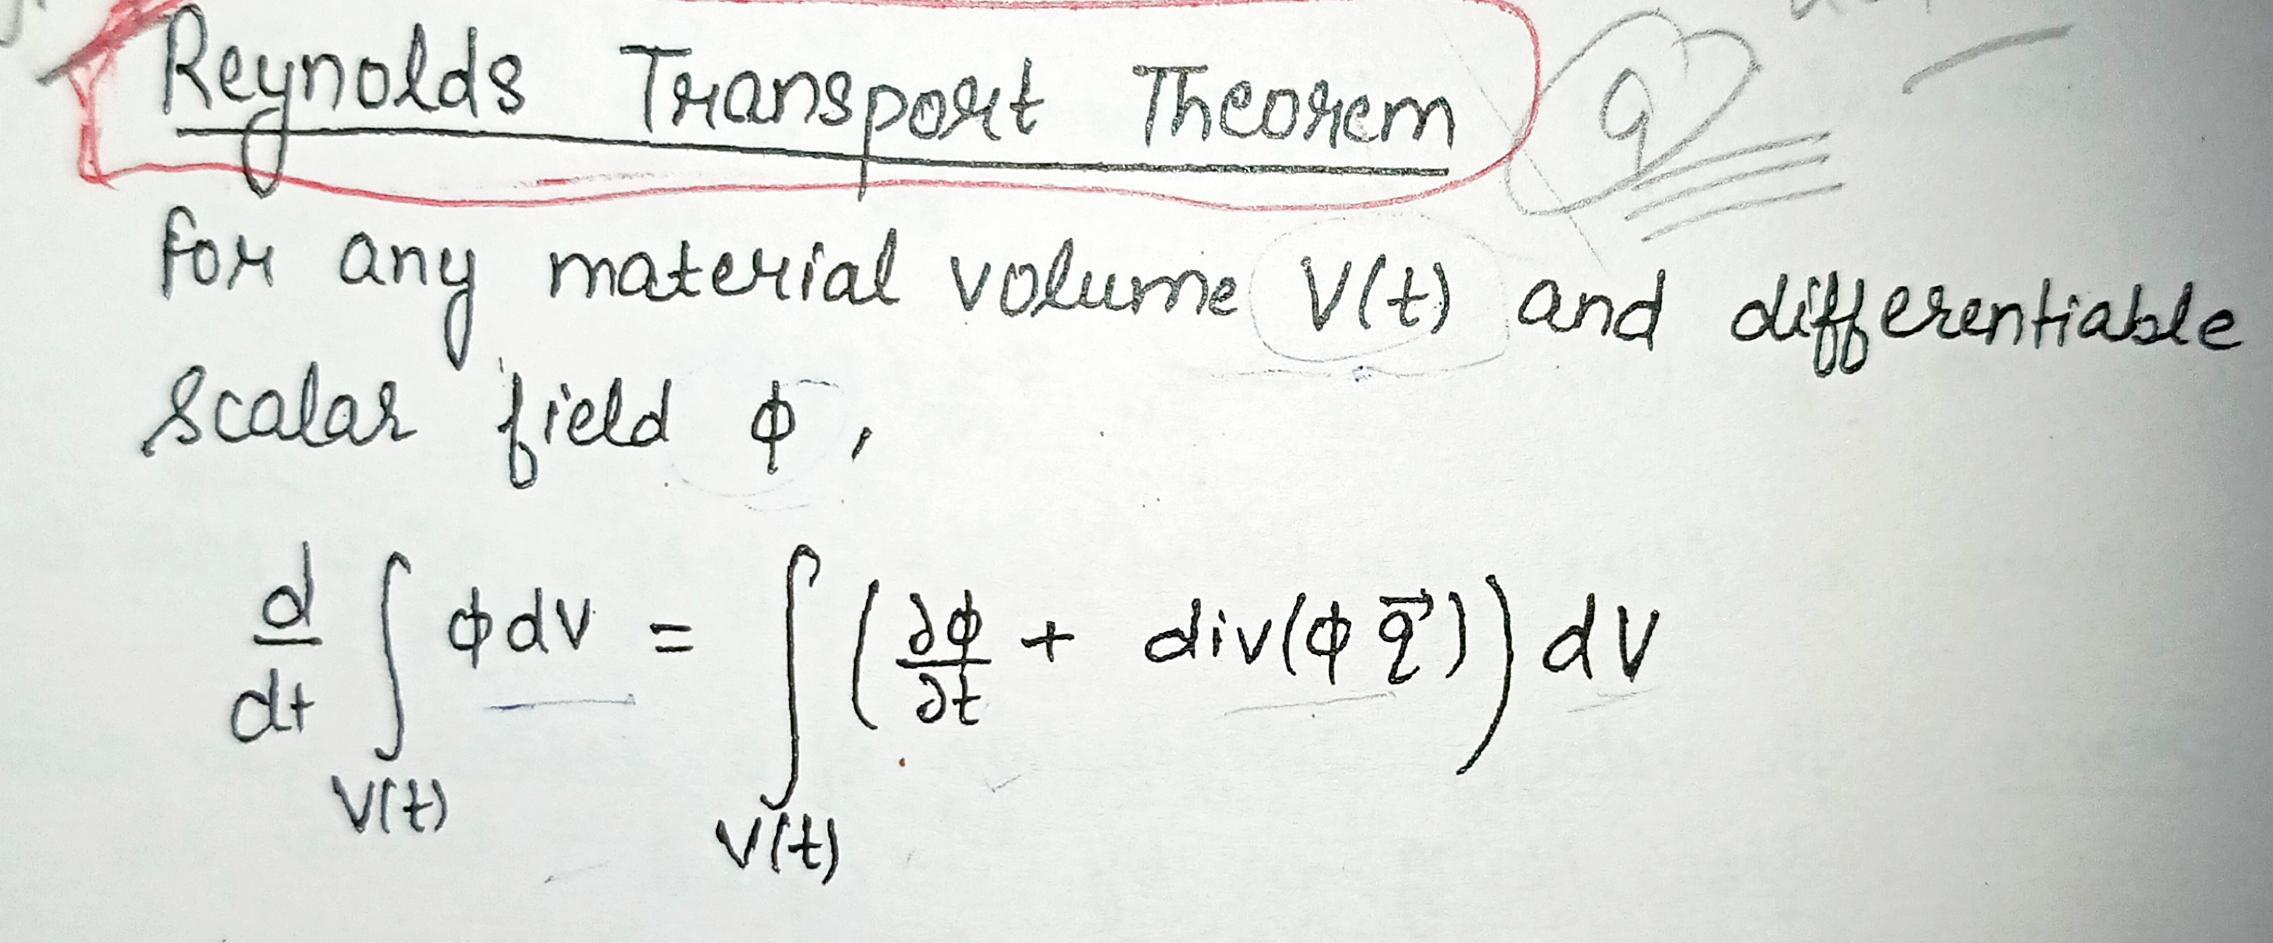 Reynolds Transport Theorem
for any material volume V(t) and differentiable
scalar field ϕ,
d/dt ∫_{V(t)} ϕ dV = ∫_{V(t)} (∂ϕ/∂t + div(ϕ q⃗)) dV